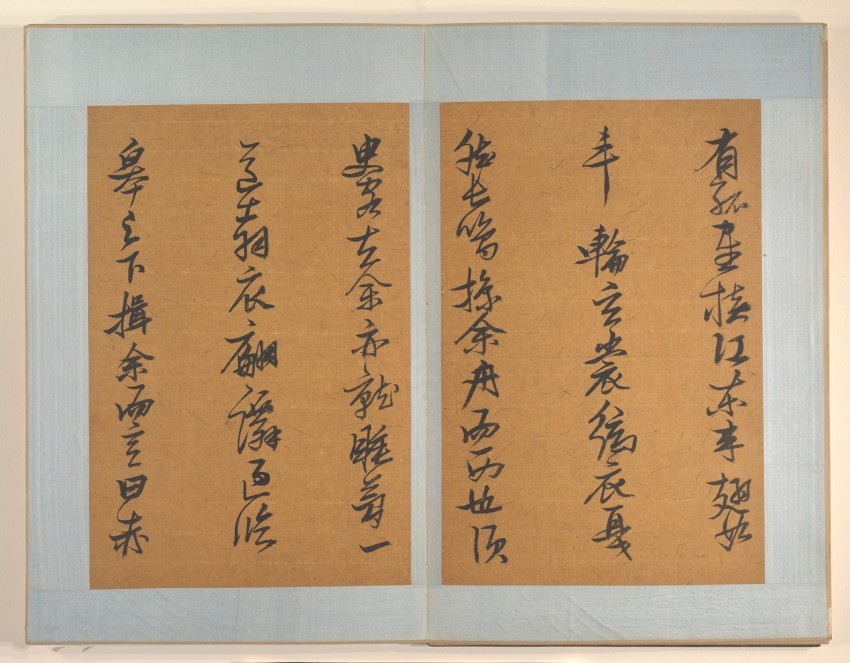 有孤鶴橫江東來翅如
車輪玄裳縞衣戛
然長鳴掠余舟而西也須
臾客去余亦就睡夢一
道士羽衣翩躚過臨
皋之下揖余而言曰赤